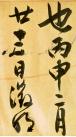 也丙申二月
廿三日徵明